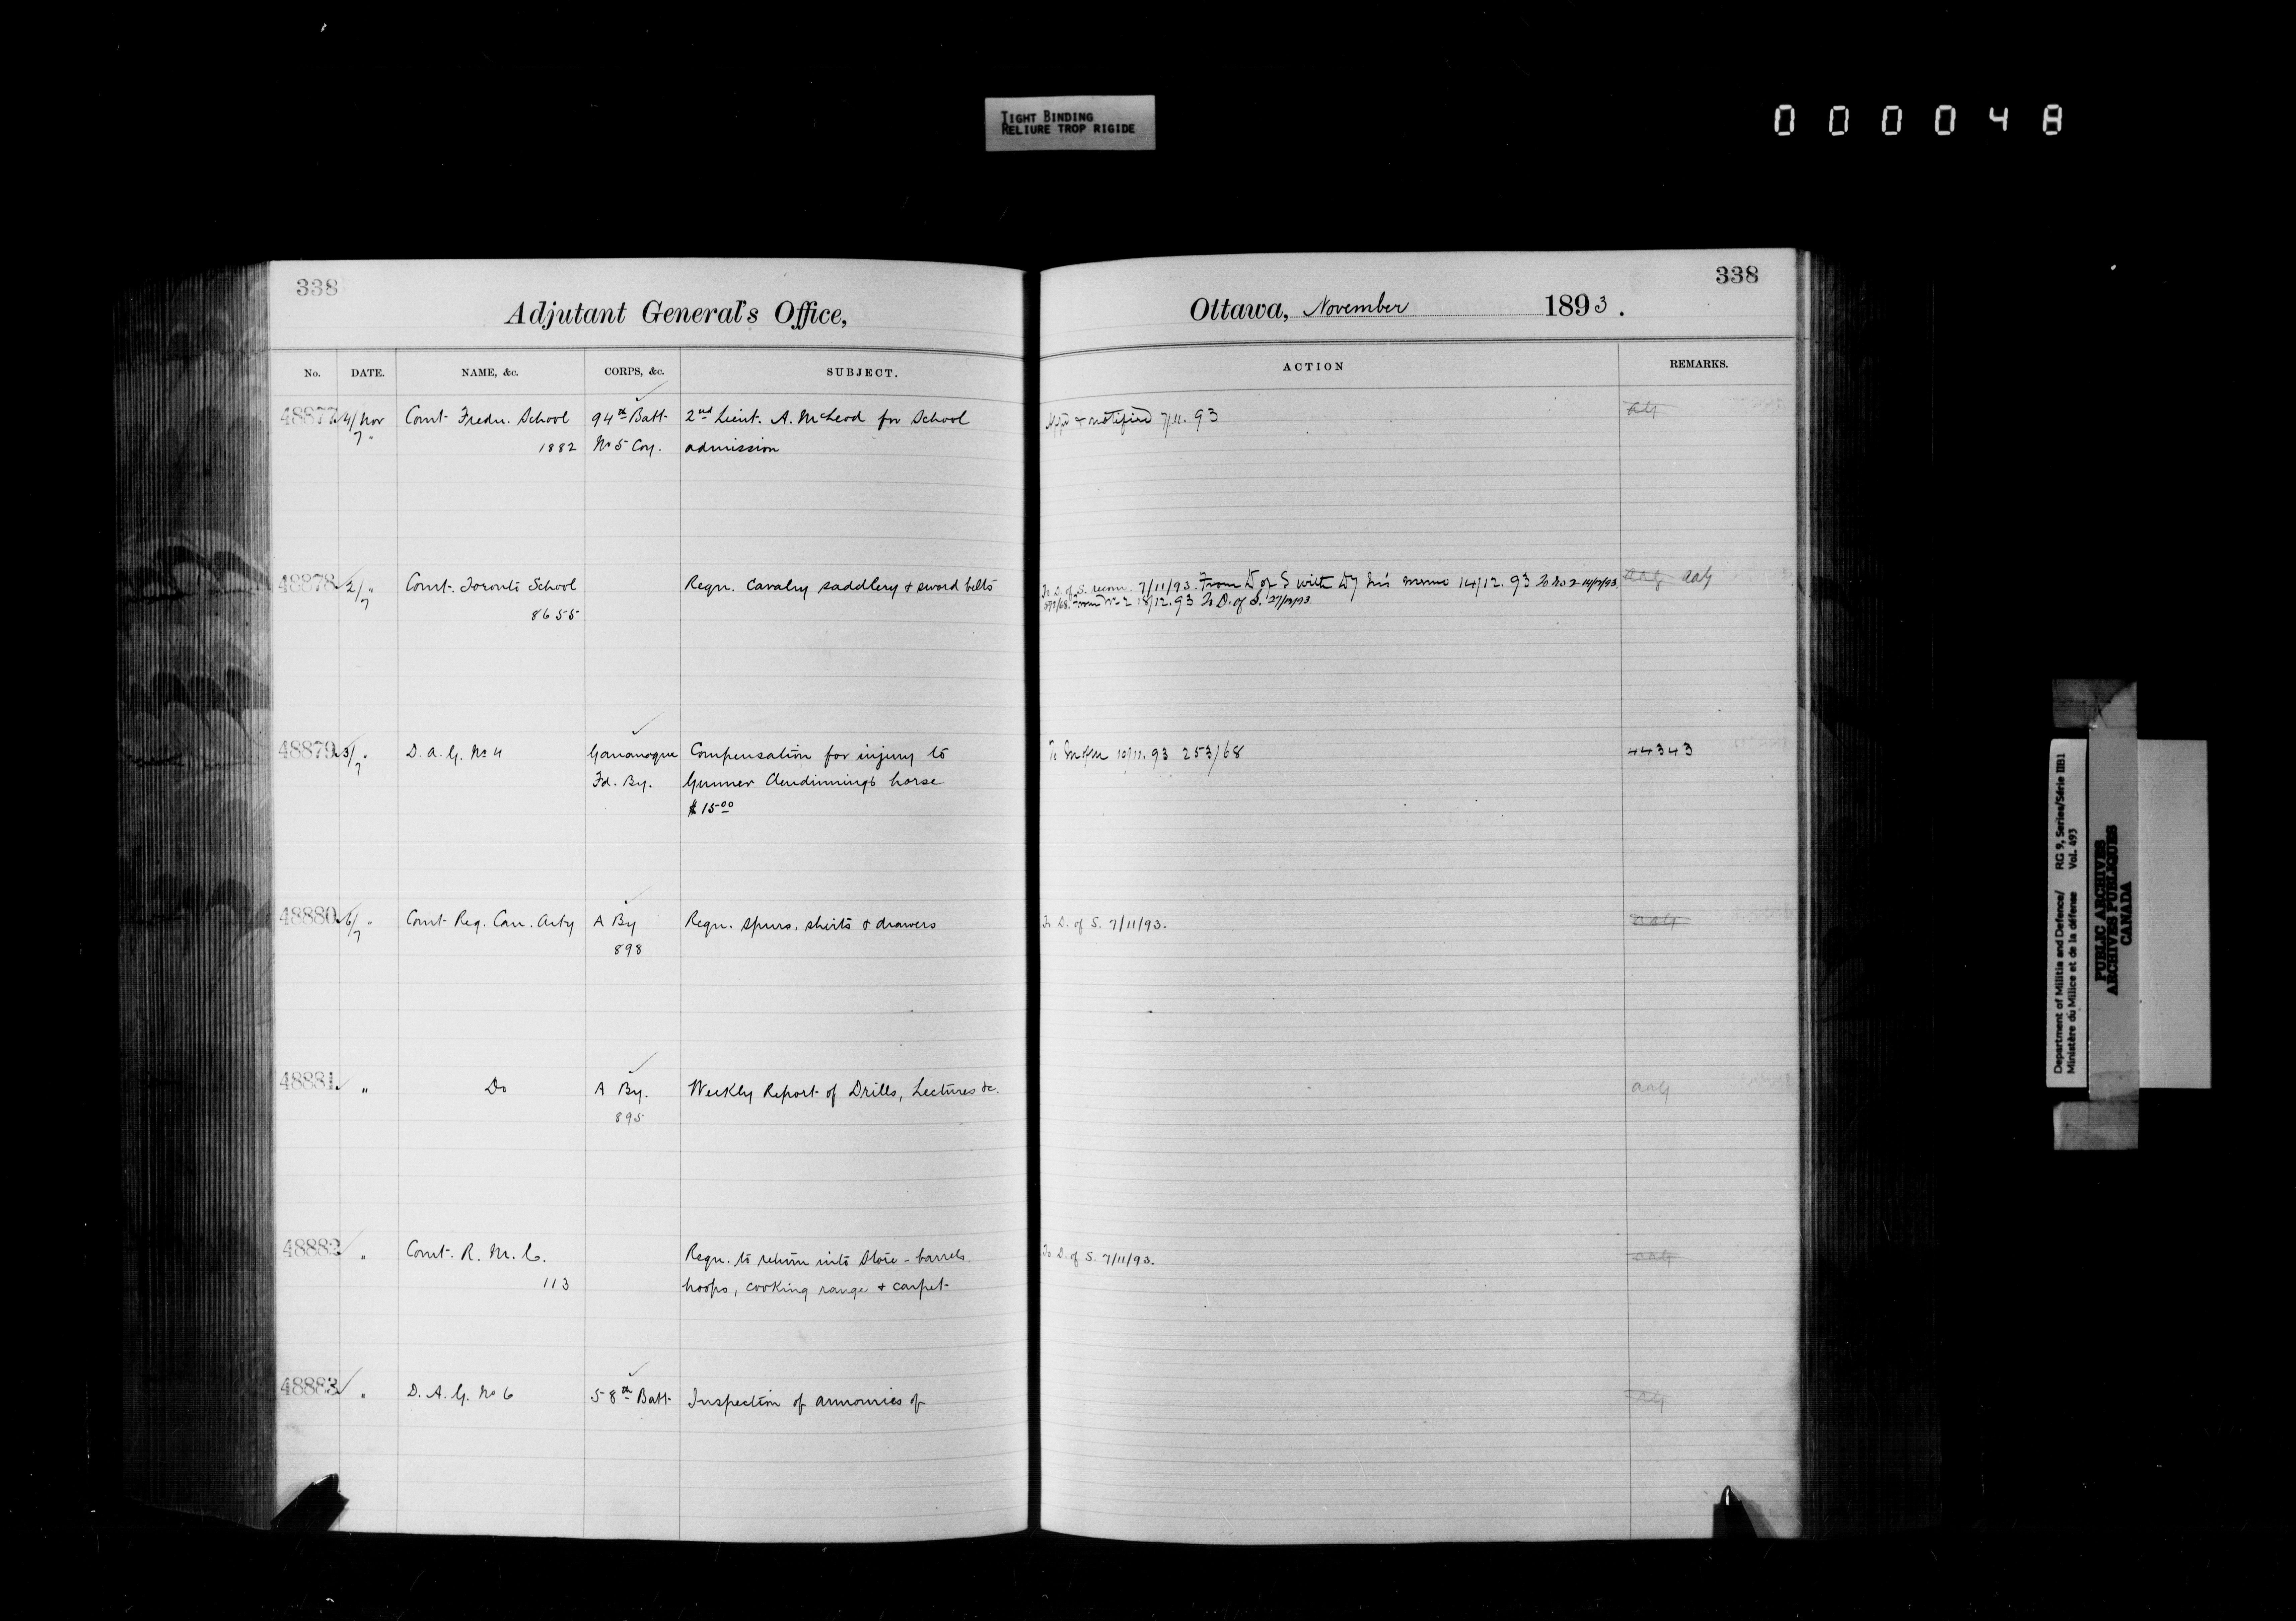 TIGHT BINDING
RELIURE TROP RIGIDE
000048
338
Adjutant General's Office,
No. DATE. NAME, &c. CORPS, &c. SUBJECT.
48877 4/7 Nov Comt Fredn. School 94th Batt 2nd Lieut. A. McLeod for School
1882 No 5 Coy. admission
48878 2/7 " Comt. Toronto School Reqn. Cavalry saddlery & sword belts
8655
48879 3/7 " D. A. G. No 4 Gananoque Compensation for injury to
Fd. By. Gunner Clendinnings horse
$15.00
48880 6/7 " Comt Reg. Can. Arty A By Reqn. spurs, shirts & drawers
898
48881 " Do A By. Weekly Report of Drills, Lectures &c.
895
48882 " Comt. R. M. C. Reqn. to return into Store - barrels
113 hoops, cooking range & carpet
48883 " D. A. G. No 6 58th Batt Inspection of armouries of
338
Ottawa, November 1893.
ACTION REMARKS.
& notified 7/11.93 AG
To D. of S. recom. 7/11/93. From D of S with memo 14/12.93 To No 2 AAG AAG
From No 2 18/12.93 To D. of S. 27/12/93
10/11.93 253/68 44343
To D. of S. 7/11/93. AAG
AAG
To D. of S. 7/11/93. AAG
AG
Department of Militia and Defence/ RG 9, Series/Série IIB1
Ministère du Milice et de la défense Vol. 493
PUBLIC ARCHIVES
ARCHIVES PUBLIQUES
CANADA